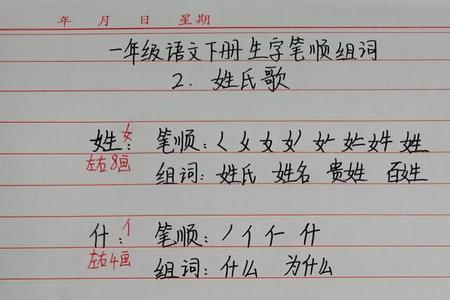 年 月 日 星期
一年级语文下册生字笔顺组词
2. 姓氏歌
姓: 女 笔顺: く 女 女 女 女 女 姓 姓
左右8画 组词: 姓氏 姓名 贵姓 百姓
什: 亻 笔顺: 丿 亻 仁 什
左右4画 组词: 什么 为什么